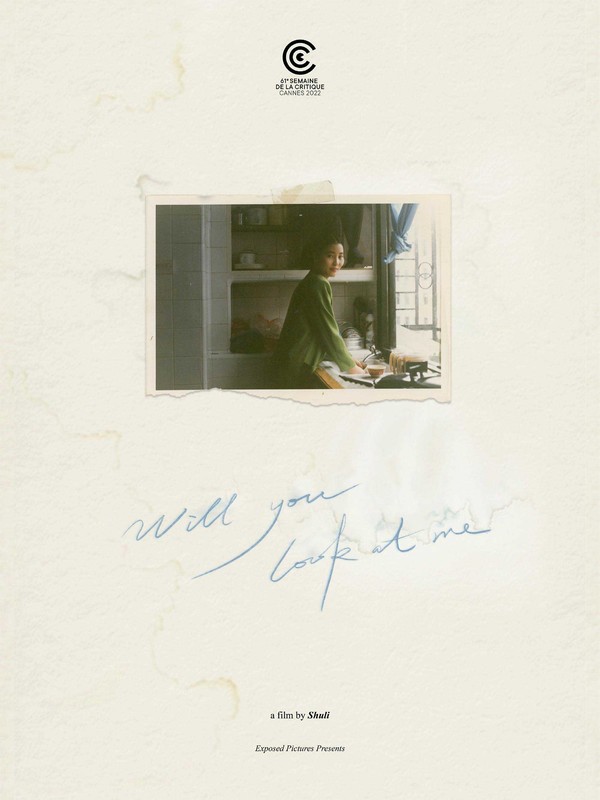 61e SEMAINE
DE LA CRITIQUE
CANNES 2022
Will you
look at me
a film by Shuli
Exposed Pictures Presents